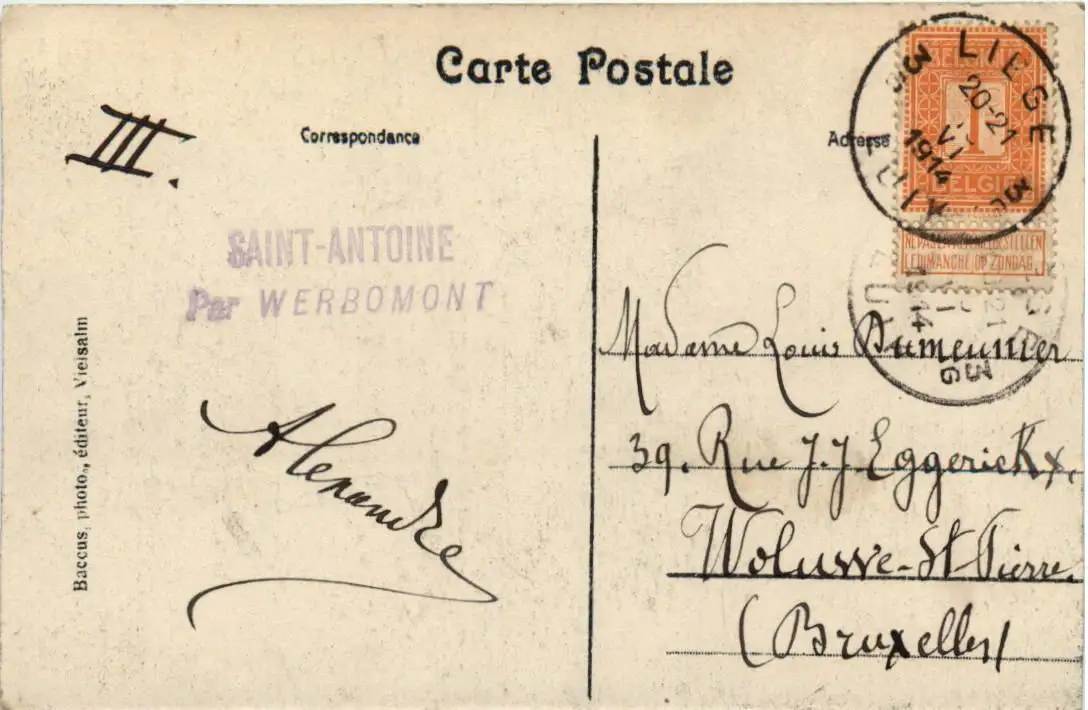 Carte Postale
Correspondance
Adresse
III.
SAINT-ANTOINE
Par WERBOMONT
Baccus, photo., éditeur, Vielsalm
Alexandre
LIEGE
3 3
20-21
VI
1914
LUIK
1
BELGIE
NE PAS LIVRER
LE DIMANCHE OP ZONDAG
Madame Louis Dumeunier
39. Rue J. J. Eggerickx.
Woluwe-St-Pierre
(Bruxelles)